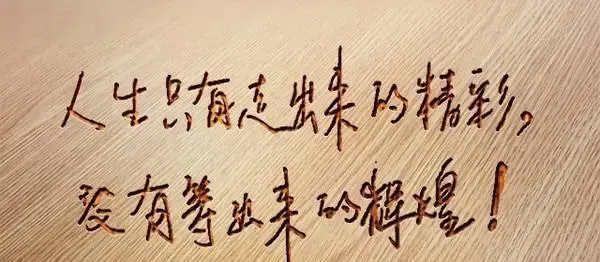 人生只有走出来的精彩，
没有等出来的辉煌！